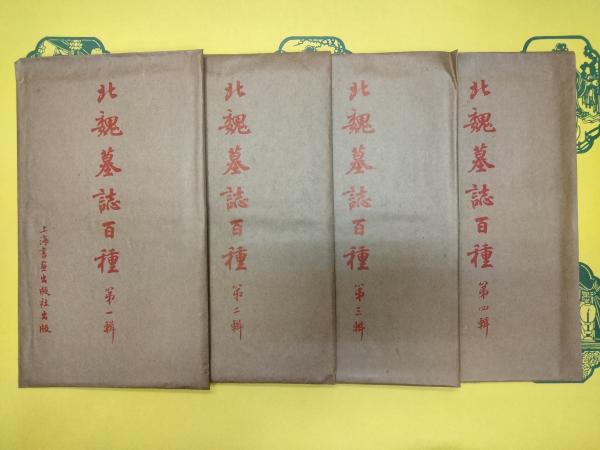 北魏墓誌百種 第一輯
上海書畫出版社出版
北魏墓誌百種 第二輯
北魏墓誌百種 第三輯
北魏墓誌百種 第四輯